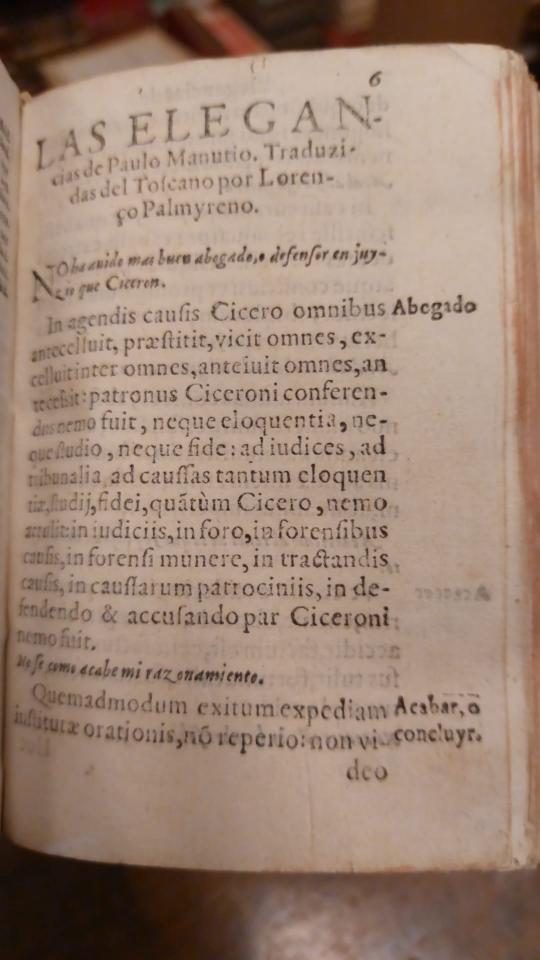 6
LAS ELEGAN-
cias de Paulo Manutio. Traduzi-
das del Toſcano por Loren-
ço Palmyreno.
NO ha auido mas buen abogado, o defenſor en juy-
zio que Ciceron.
In agendis cauſis Cicero omnibus Abogado
antecelluit, præſtitit, vicit omnes, ex-
celluit inter omnes, anteiuit omnes, an
teceſsit: patronus Ciceroni conferen-
dus nemo fuit, neque eloquentia, ne-
que ſtudio, neque fide: ad iudices, ad
tribunalia ad cauſſas tantum eloquen
tiæ, ſtudij, fidei, quãtùm Cicero, nemo
attulit: in iudiciis, in foro, in forenſibus
cauſis, in forenſi munere, in tractandis
cauſis, in cauſſarum patrociniis, in de-
fendendo & accuſando par Ciceroni
nemo fuit.
No ſe como acabe mi razonamiento.
Quemadmodum exitum expediam Acabar, o
inſtitutæ orationis, nõ reperio: non vi- concluyr.
deo